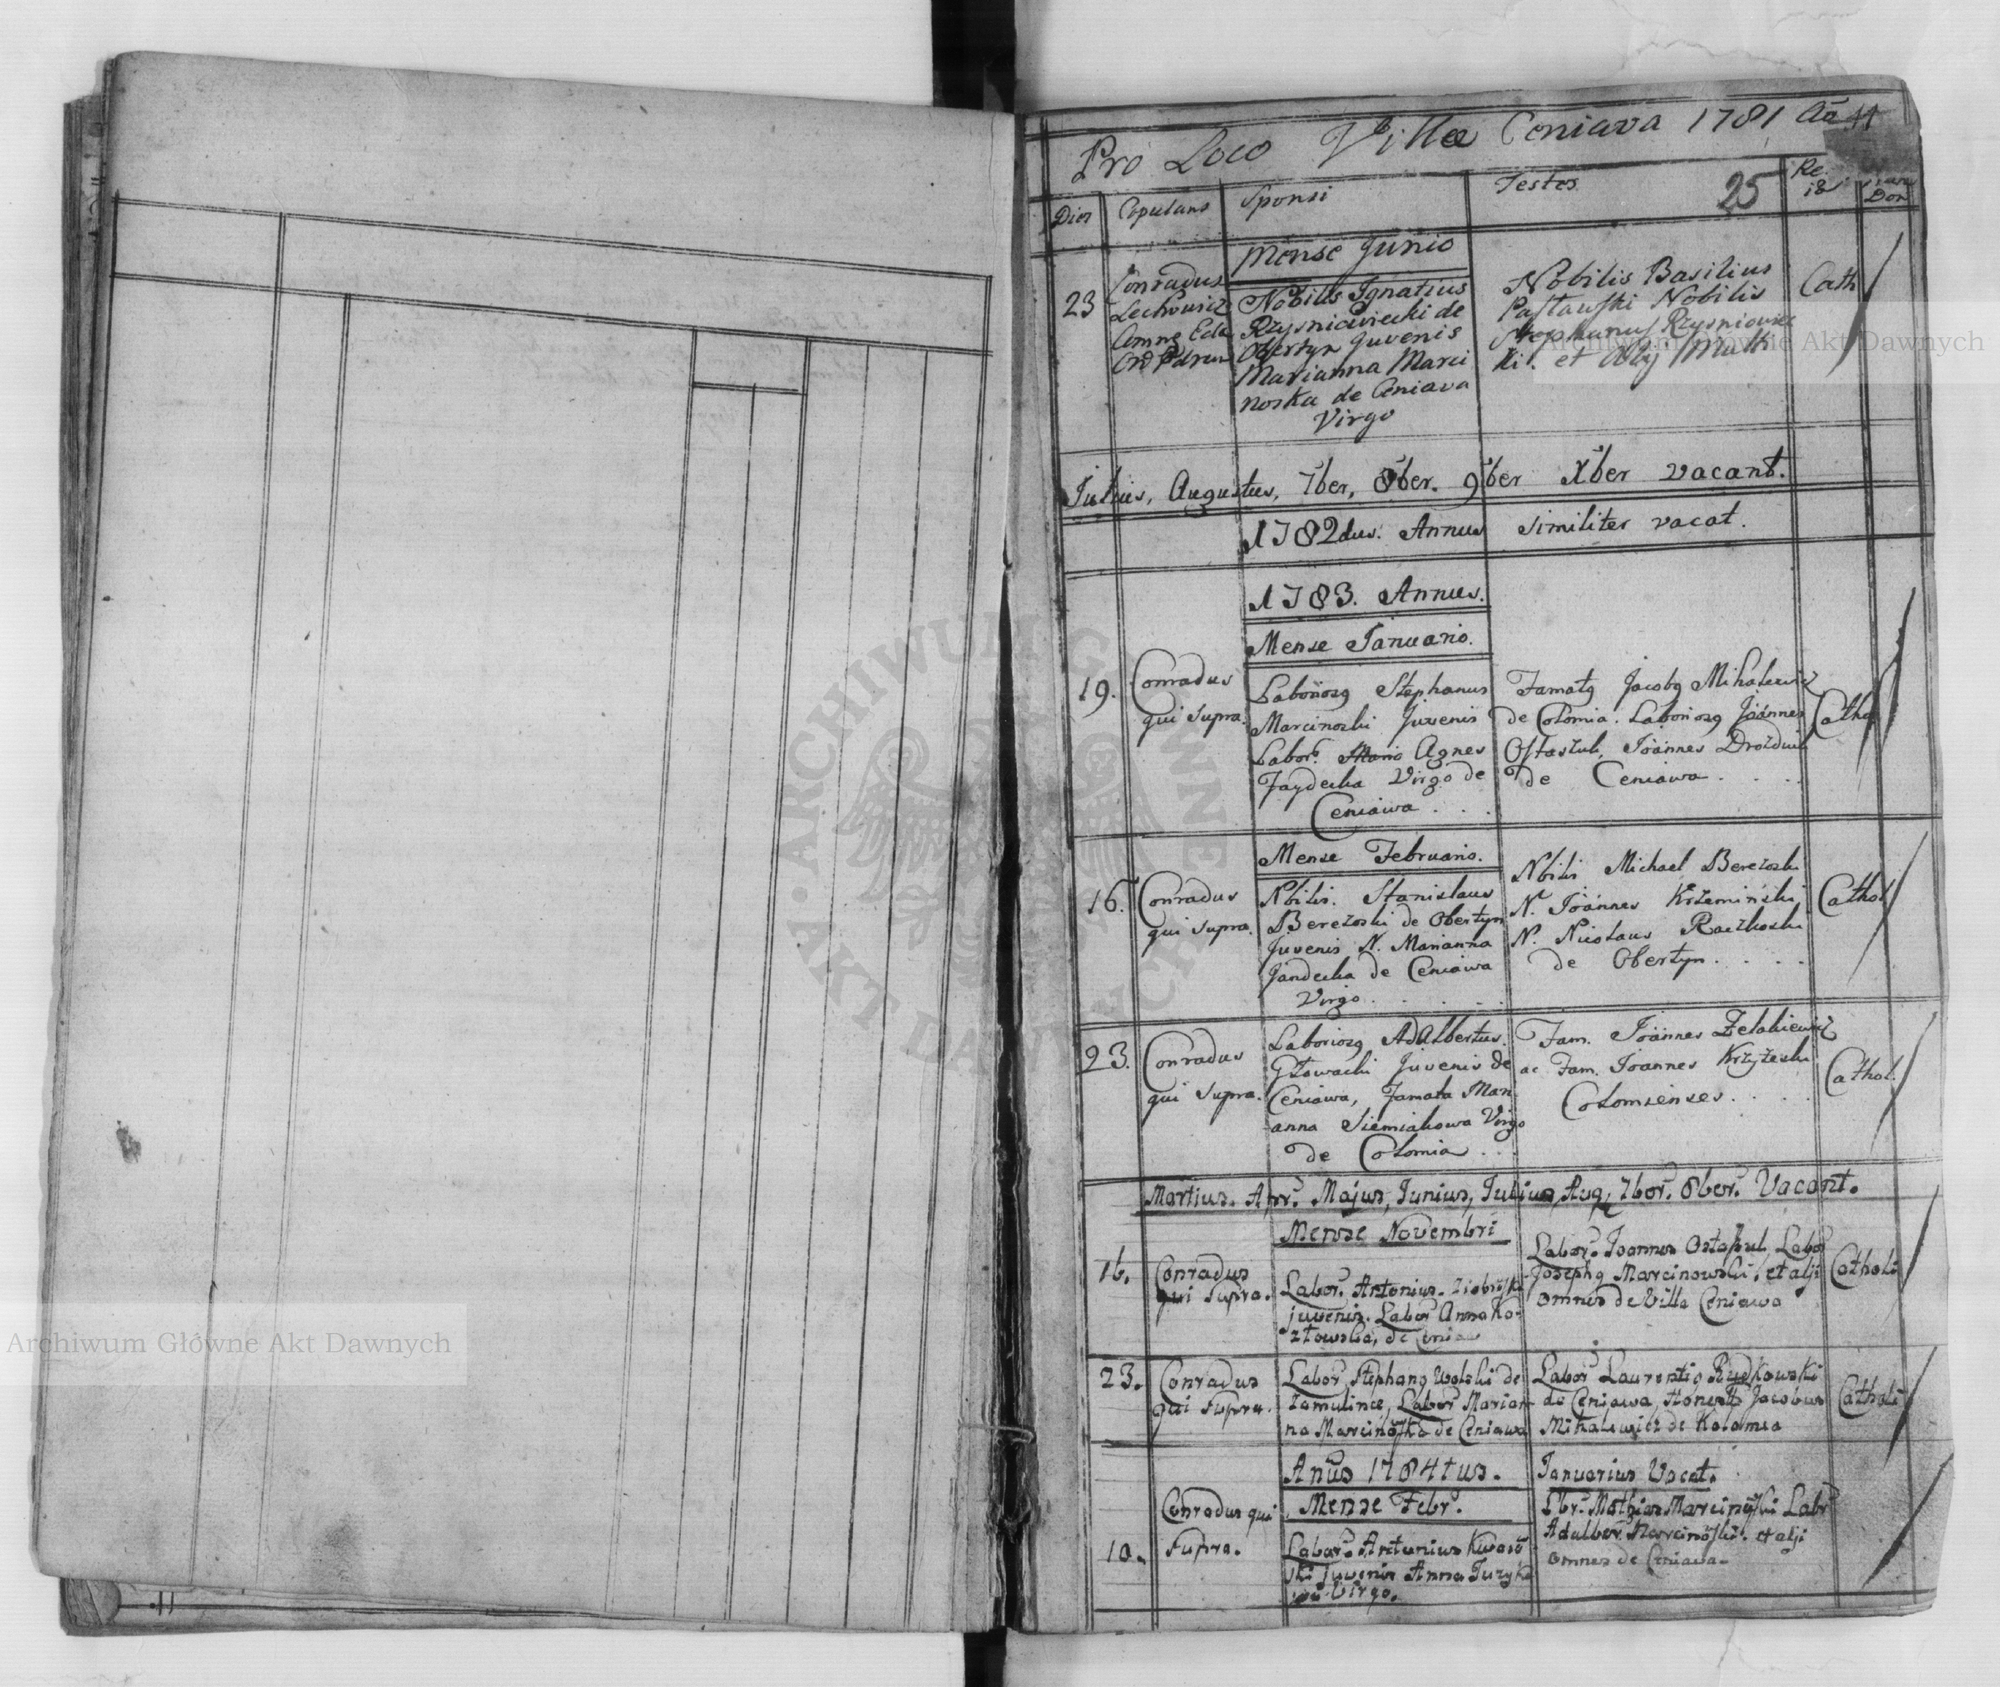 Pro Loco Villæ Ceniava 1781 Aō
Dies
Copulans
Sponsi
Testes
25
Mense Junio
23
Conradus
Lechowicz
Nobilis Ignatius
Rzysniowiecki de
Obertyn Juvenis
Marianna Marci
noska de Ceniava
Virgo
Nobilis Basilius
Nobilis
Stephanus Rzysniowiec
ki. et Alij Multi
Cath
Julius, Augustus, 7ber, 8ber. 9ber Xber vacant.
1782dus. Annus similiter vacat.
1783. Annus.
Mense Januario.
19.
Conradus
qui supra.
Stephanus
Marcinoski Juvenis
Labor. Agnes
Virgo de
Ceniawa . . .
Jacobg Mihalewicz
de Colomia. Joannes
Joannes
de Ceniawa . . .
Cathol
Mense Februario.
16.
Conradus
qui supra.
Nbilis. Stanislaus
Berezoski de Obertyn
Juvenis N. Marianna
Jandecka de Ceniawa
Virgo . . . .
Nbilis Michael Berezoski
N. Joannes Krzeminski
N. Nicolaus Raczkoski
de Obertyn . . . .
Cathol
23.
Conradus
qui supra.
Adalbertus.
Głowacki Juvenis de
Ceniawa, Famata Mari
anna Siemiakowa Virgo
de Colomia . . .
Fam. Joannes
ac Fam. Joannes Krzyzeski
Colomienses . . . .
Cathol.
Martius. Apr. Majus, Junius, Julius, Aug, 7ber. 8ber. Vacant.
Mense Novembri
16.
Conradus
qui supra.
Labor. Antonius
juvenis. Labor Anna Ko-
złowska, de Ceniaw
Labor. Joannes Labor
Josephg Marcinowski, et alji
omnes de Villa Ceniawa
Catholi
23.
Conradus
qui supra.
Labor. Stephang Wolski de
Labor Marian-
na Marcinoska de Ceniawa
Labor Rudkowski
de Ceniawa, Jacobus
Mihalewicz de Kolomea
Catholi
Anus 1784tus.
Januarius Vacat.
Mense Febr.
Conradus qui
supra.
10.
Labor. Antonius
ski juvenis Anna
Virgo.
Lbr. Mathias Marcinoski Labr
Adalber Marcinoski. et alji
omnes de Ceniawa-
Archiwum Główne Akt Dawnych
Archiwum Główne Akt Dawnych
ARCHIWUM GŁÓWNE AKT DAWNYCH